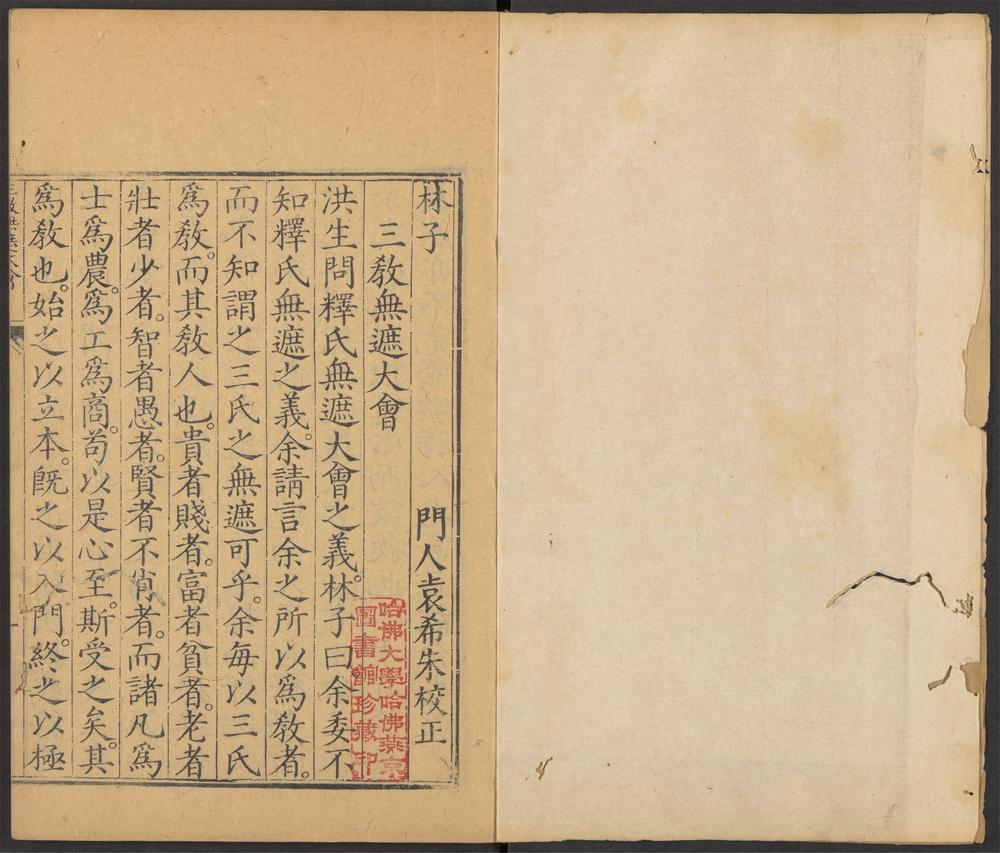 林子
門人袁希朱校正
三教無遮大會
洪生問釋氏無遮大會之義。林子曰余委不
知釋氏無遮之義。余請言余之所以爲教者。
而不知謂之三氏之無遮可乎。余每以三氏
爲教。而其教人也。貴者賤者。富者貧者。老者
壯者少者。智者愚者。賢者不肖者。而諸凡爲
士爲農。爲工爲商。苟以是心至。斯受之矣。其
爲教也。始之以立本。旣之以入門。終之以極
哈佛大學哈佛燕京
圖書館珍藏印